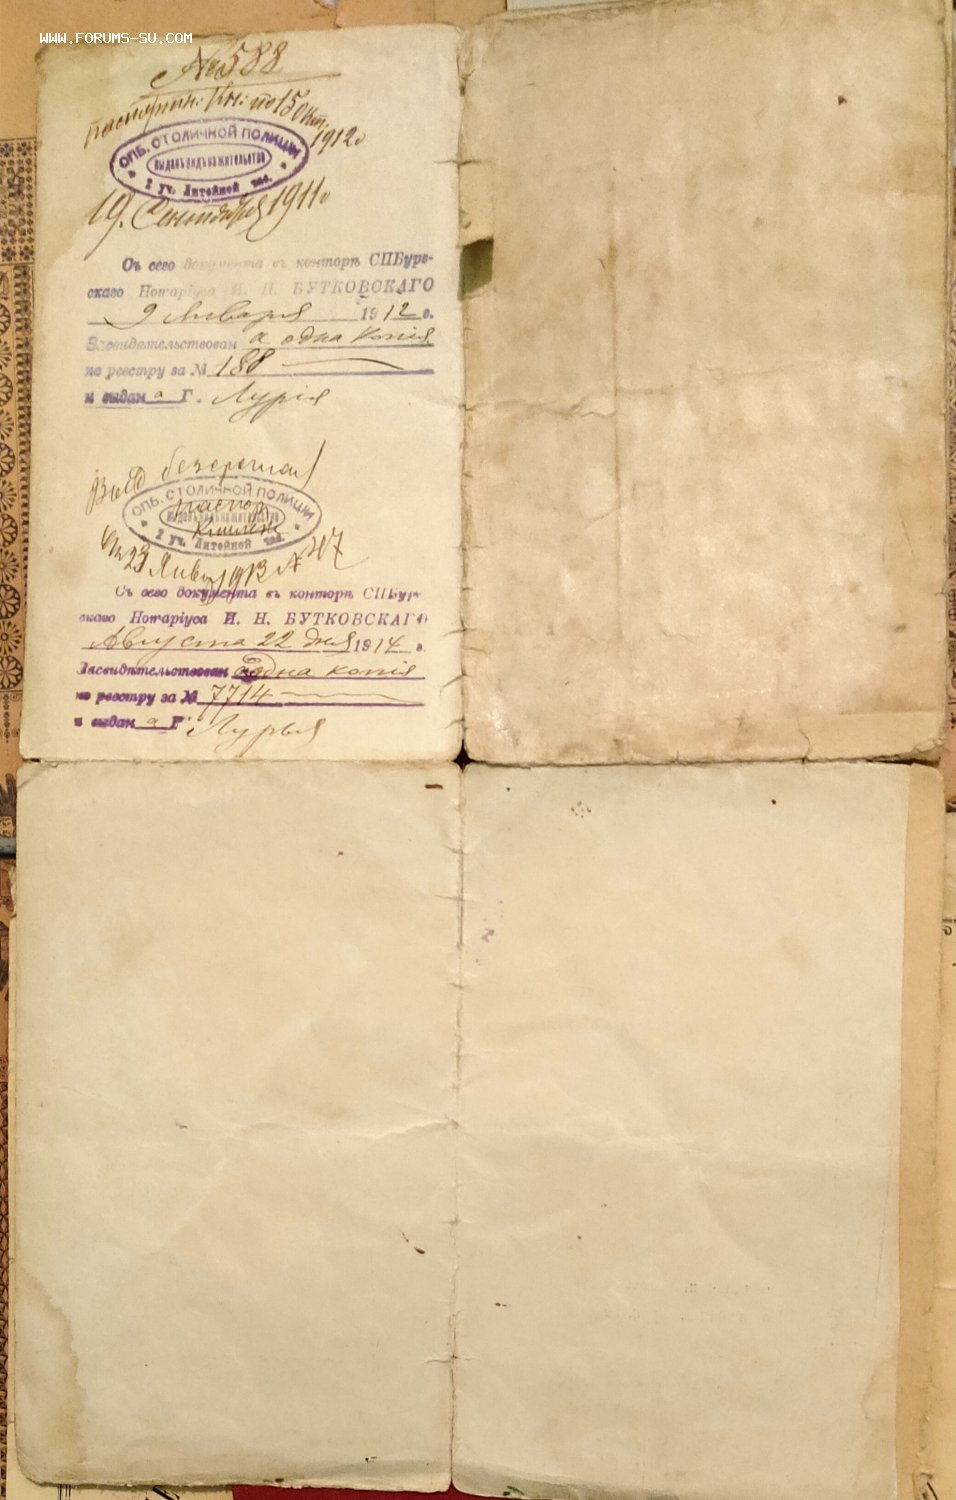 WWW.FORUMS-SU.COM
№ 588
паспортн: Кн: по 15 окт: 1912 г
СПБ. СТОЛИЧНОЙ ПОЛИЦІИ
ВЫДАНЪ ВИДЪ НА ЖИТЕЛЬСТВО
2 уч. Литейной час.
19. Сентября 1911 г
Съ сего документа въ конторѣ СПБург-
скаго Нотаріуса И. Н. БУТКОВСКАГО
9 Января 1912 г.
Засвидѣтельствован а одна копія
по реестру за № 188
и выдан а Г. Лурія
Выд безсрочная
СПБ. СТОЛИЧНОЙ ПОЛИЦІИ
паспор
ВЫДАНЪ ВИДЪ НА ЖИТЕЛЬСТВО
книжк
2 уч. Литейной час.
23 Янва 1913 № 47
Съ сего документа въ конторѣ СПБур
скаго Нотаріуса И. Н. БУТКОВСКАГО
Августа 22 дня 1914 г.
Засвидѣтельствован а одна копія
по реестру за № 7714
и выдан а Г. Лурья